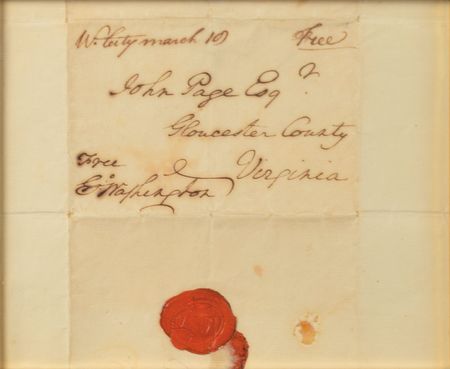 W. City march 10 Free
John Page Esqr
Gloucester County
Virginia
Free
Go Washington